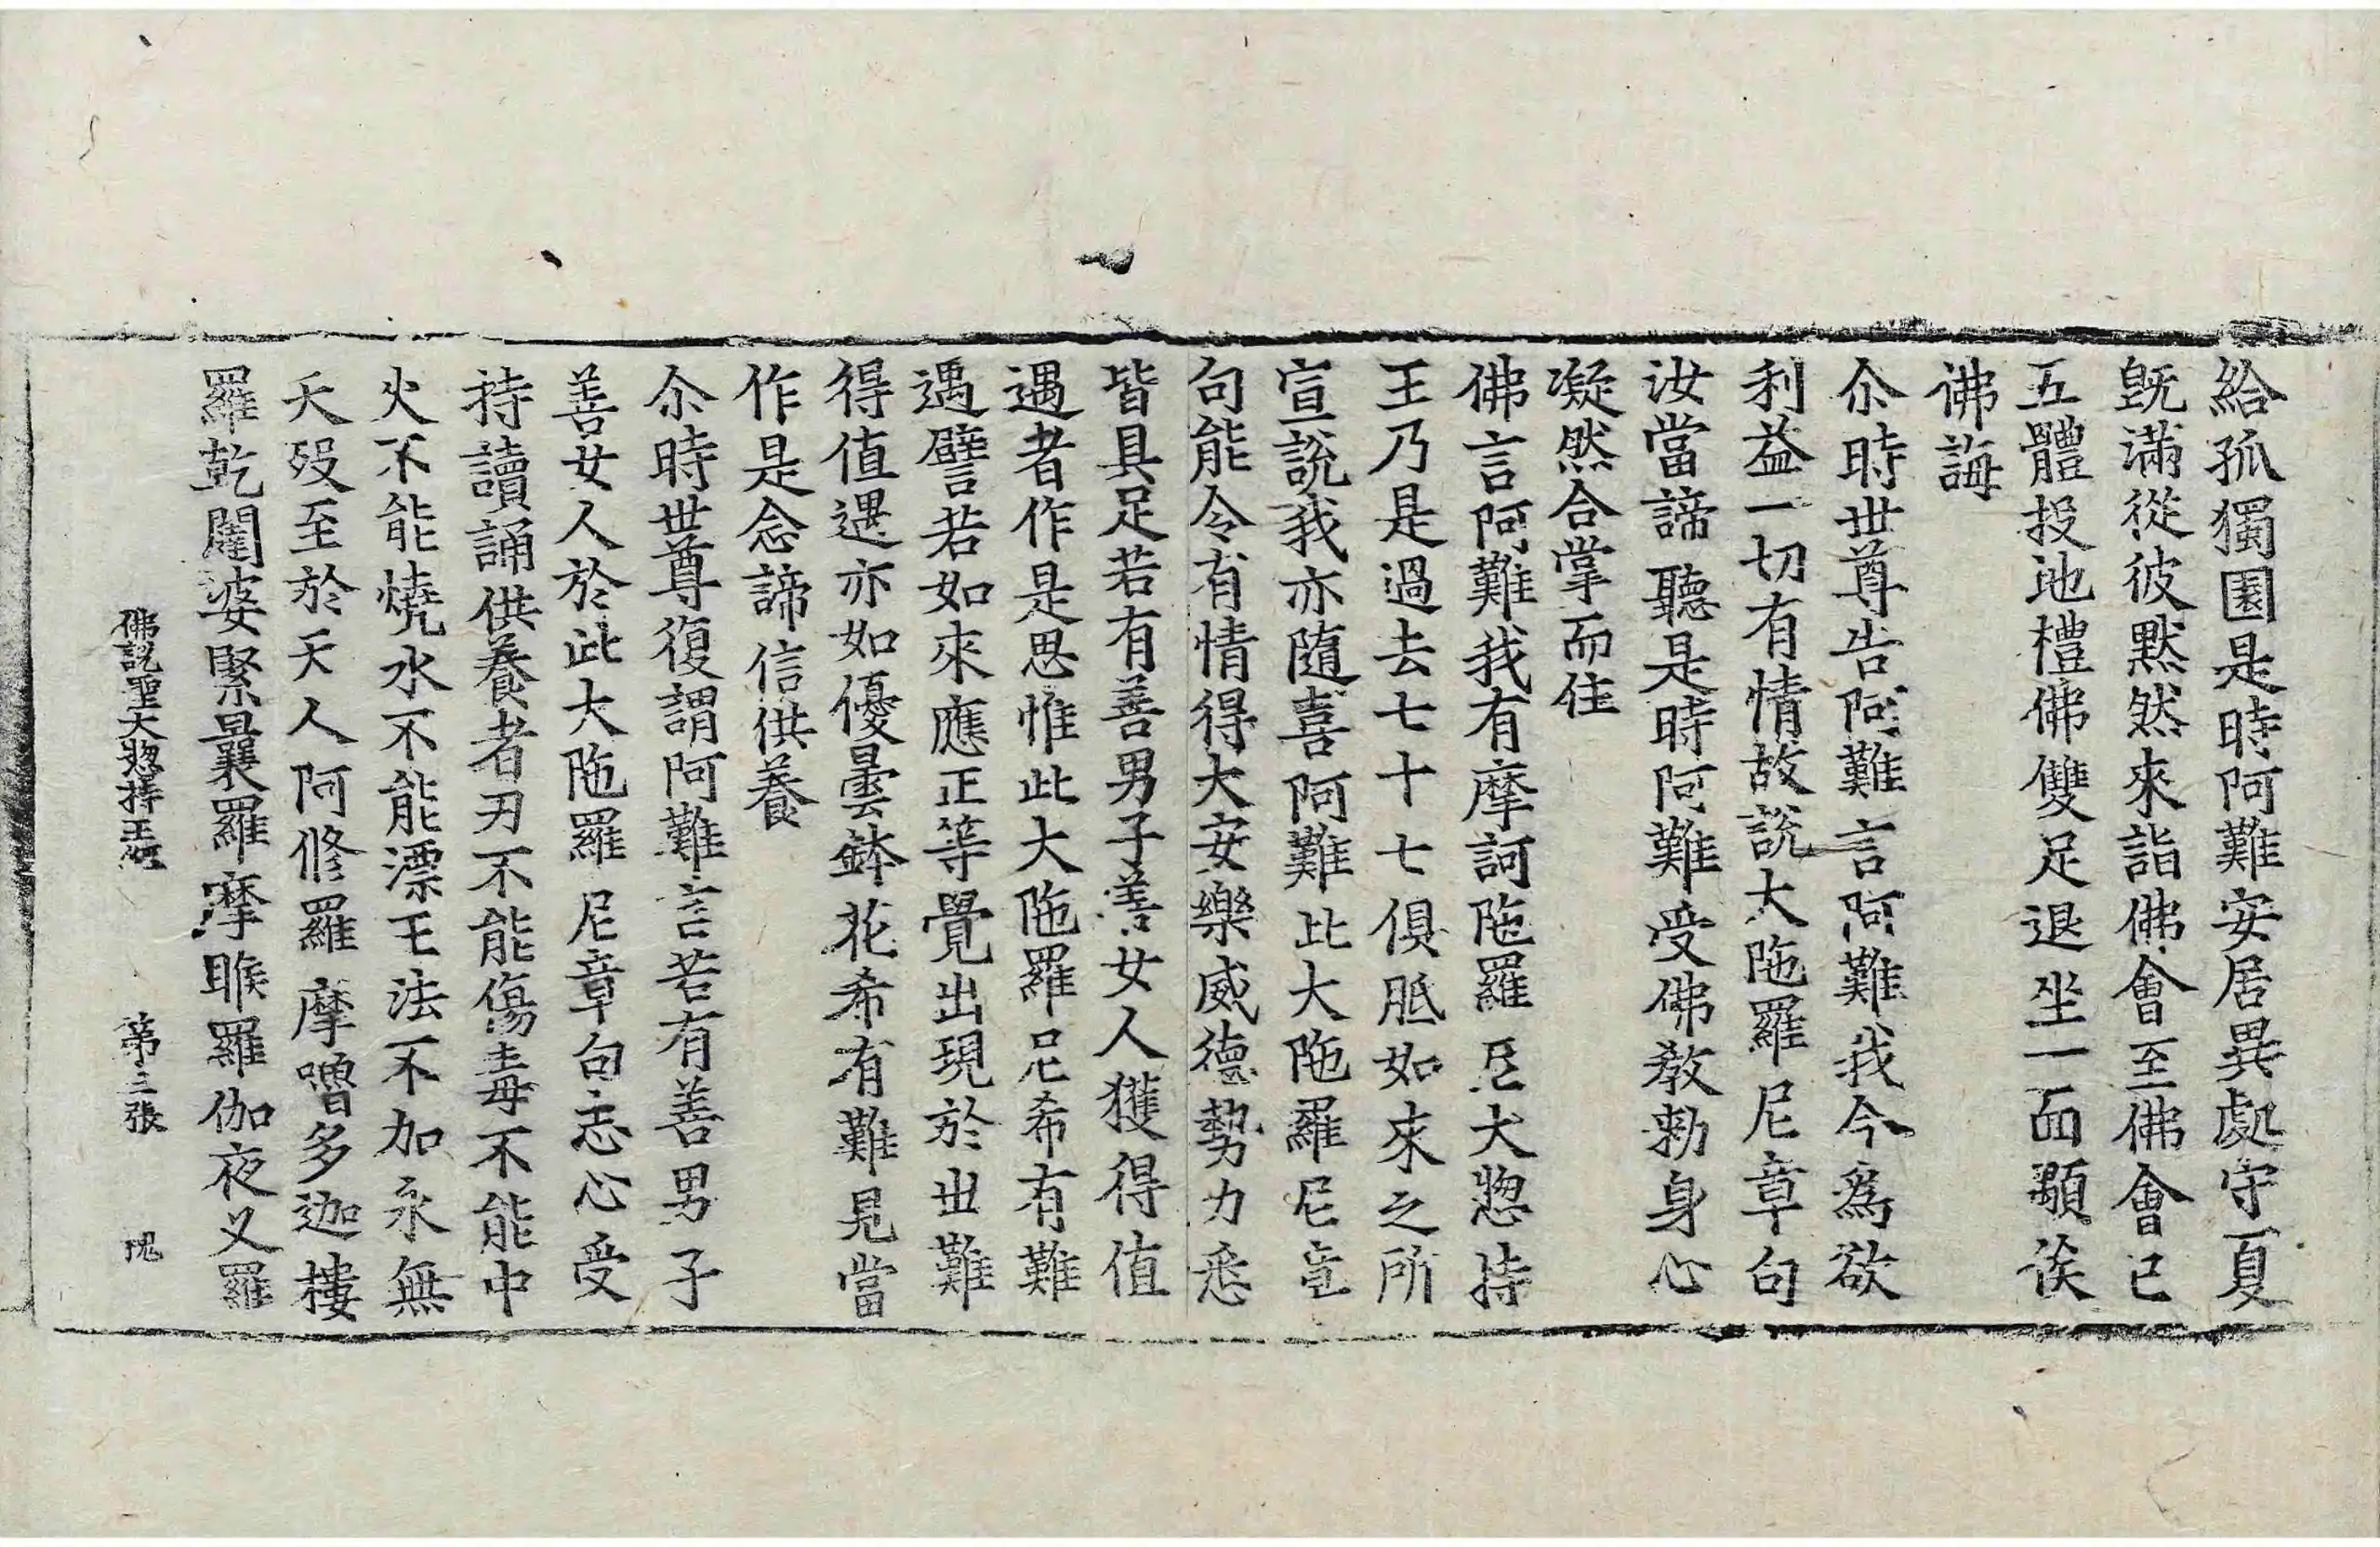 給孤獨園是時阿難安居異處守一夏
旣滿從彼黙然來詣佛會至佛會已
五體投地禮佛雙足退坐一面顒俟
佛誨
尒時世尊告阿難言阿難我今爲欲
利益一切有情故說大陁羅尼章句
汝當諦聽是時阿難受佛教勑身心
凝然合掌而住
佛言阿難我有摩訶陁羅尼大惣持
王乃是過去七十七俱胝如來之所
宣說我亦隨喜阿難此大陁羅尼章
句能令有情得大安樂威德勢力悉
皆具足若有善男子善女人獲得值
遇者作是思惟此大陁羅尼希有難
遇譬若如來應正等覺出現於世難
得值遇亦如優曇鉢花希有難見當
作是念諦信供養
尒時世尊復謂阿難言若有善男子
善女人於此大陁羅尼章句志心受
持讀誦供養者刃不能傷毒不能中
火不能燒水不能漂王法不加永無
夭殁至於天人阿修羅摩嚕多迦樓
羅乾闥婆緊曩羅摩睺羅伽夜叉羅
佛說聖大惣持王經 第三張 隗